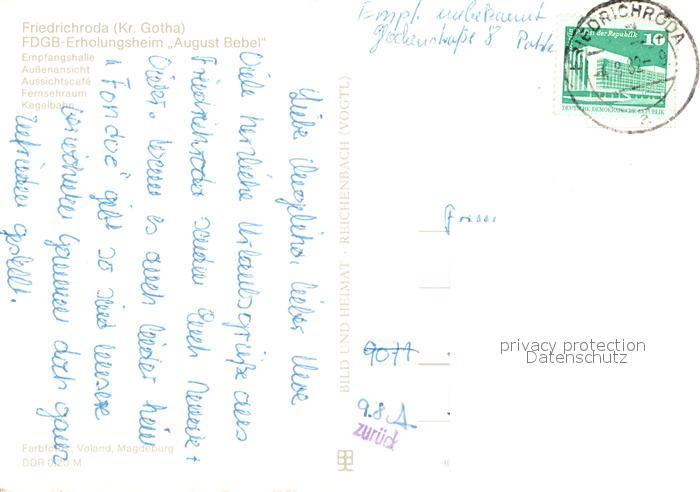 Friedrichroda (Kr. Gotha)
FDGB-Erholungsheim „August Bebel“
Empfangshalle
Außenansicht
Aussichtscafé
Fernsehraum
Kegelbahn
Liebe Angelika, lieber Uwe
Viele herzliche Urlaubsgrüße aus
Friedrichroda senden Euch
Dieter. Wenn es auch leider kein
"Fondue" gibt so sind unsere
verwöhnten Gaumen doch ganz
zufrieden gestellt.
Farbfotos: Voland, Magdeburg
DDR 0,20 M
BILD UND HEIMAT · REICHENBACH (VOGTL)
Empf. unbekannt
8
FRIEDRICHRODA
der Republik 10
DEUTSCHE DEMOKRATISCHE REPUBLIK
9077
9.8.
zurück
privacy protection
Datenschutz